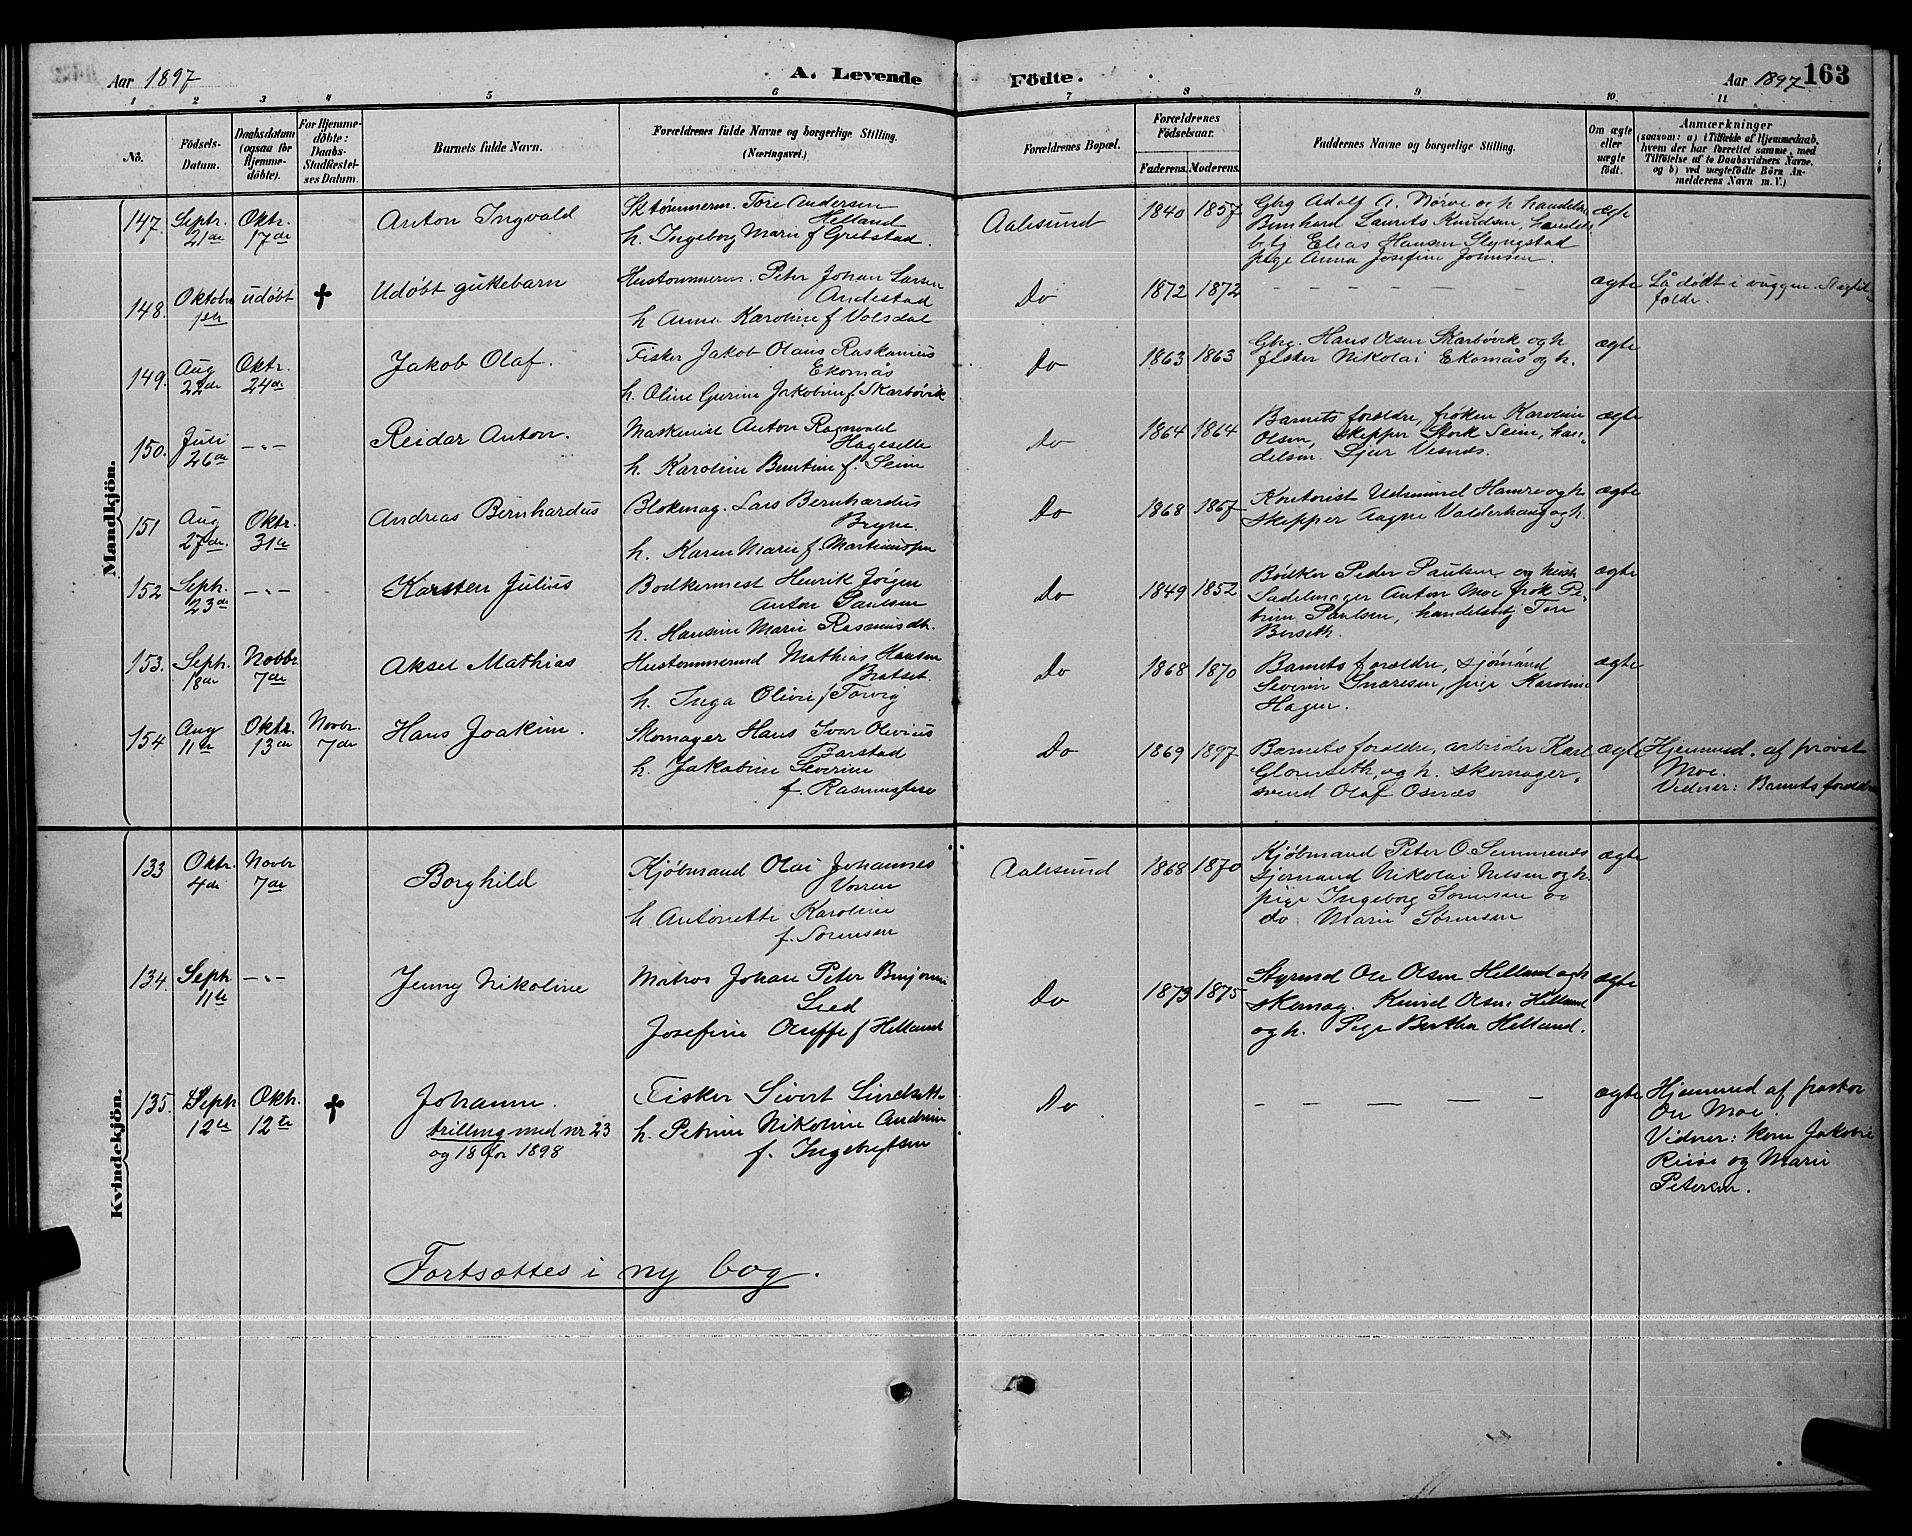 Aar 1897
A. Levende
Födte.
Aar 1897 163
1 2 3 4 5 6 7 8 9 10 11
No.
Födsels-
Datum.
Daabsdatum
(ogsaa for
Hjemme-
döbte).
For Hjemme-
döbte:
Daabs-
Stadfæstel-
ses Datum.
Barnets fulde Navn.
Forældrenes fulde Navne og borgerlige Stilling.
(Næringsvei.)
Forældrenes Bopæl.
Forældrenes
Födselsaar.
Faderens. Moderens.
Faddernes Navne og borgerlige Stilling.
Om ægte
eller
uægte
födt.
Anmærkninger
(saasom: a) i Tilfælde af Hjemmedaab,
hvem der har forrettet samme, med
Tilföielse af to Daabsvidners Navne,
og b) ved uægtefödte Börn An-
melderens Navn m. V.)
Mandkjön.
147. Septr. 21de
Oktr. 17de
Anton Ingvald
Sktømmerm. Tore Andersen
Helland
h. Ingeborg Marie f Grebstad.
Aalesund
1840 1857
Gbrg Adolf A. Nörve og h handelsm
Bernhard Laurits Knudsen, handels
btj Elias Hansen Slyngstad
pige Anna Josefine Johnsen.
ægte
148. Oktober 1ste
udöbt
†
Udöbt guttebarn
Hustømmerm. Peter Johan Larsen
Andestad
h Anna Karoline f Volsdal
Do
1872 1872
– – – – – –
ægte
Lå dödt i vuggen.
149. Aug 22de
Oktr. 24de
Jakob Olaf.
Fisker Jakob Olaus Raskanius
Ekornås
h. Oline Gurine Jakobine f. Skarbövik
Do
1863 1863
Gbrg. Hans Olsen Skarbövik og h
fisker Nikolai Ekornås og h.
ægte
150. Juli 26de
-"-
Reidar Anton.
Maskenist Anton Ragnvald
Hageselle
h. Karoline Berntine f. Seim
Do
1864 1864
Barnets foreldre, fröken Karoline
Olsen, skipper Stork Seim, han-
delsm. Sjur Visnes.
ægte
151 Aug 27de.
Oktr. 31te
Andreas Bernhardus
Blokmag. Lars Bernhardus
Brgne.
h. Karen Marie f. Martinussen
Do
1868 1867
Kontorist Udmund Hamre og h.
skipper Aagne Valderhaug og h.
ægte
152 Septr. 23de
-"-
Karsten Julius
Bödkermest Henrik Jörgen
Anton Paulsen
h. Hansine Marie Rasmusdtr.
Do
1849 1852
Bödker Peder Paulsen og hust
Sadelmager Anton Moe frök Pe-
trine Paulsen, handelsbtj Tore
Berseth.
ægte
153. Septr. 18de
Novbr 7de
Aksel Mathias
Hustømmermd Mathias Hansen
Bratset.
h. Inga Oline f Torvig
Do
1868 1870
Barnets foreldre, sjömand
Severin Snaresen, pige Karoline
Hagen.
ægte
154 Aug 11te
Oktr. 13de
Novbr. 7de
Hans Joakim.
Skomager Hans Ivar Olivius
Barstad
h. Jakobine Severine
f. Rasmussen
Do
1869 1897
Barnets foreldre, arbeider Karl
Glomseth, og h. skomager-
svend Olaf Osnes
ægte
Hjemmed. af provst
Moe.
Vidner: Barnets foreldre
Kvindekjön.
133 Oktr. 4de
Novbr 7de
Borghild
Kjöbmand Olai Johannes
Vorren
h Antonette Karoline
f. Sorensen
Aalesund
1868 1870
Kjöbmand Peter O. Semmenes
sjomand Nikolai Nilsen og h.
pige Ingeborg Sorensen og
do Marie Sörensen
ægte
134. Septr 11te
-"-
Jenny Nikoline
Matros Johan Peter Benjamin
Lied
Josefine Oluffe f Helland
Do
1873 1875
Styrmd Ole Olsen Helland og h
skomag. Knud Olsen Helland
og h. Pige Berthe Helland.
ægte
135. Septr 12te
Oktr. 12te
†
Johanne.
trilling med nr 23
og 18 for 1898
Fisker Sivert
h. Petrine Nikoline Andrine
f. Ingebrigtsen
Do
– – – – –
ægte
Hjemmed af pastor
Ole Moe.
Vidner: kone Jakobine
Riise og Marie
Petersen.
Fortsættes i ny bog.